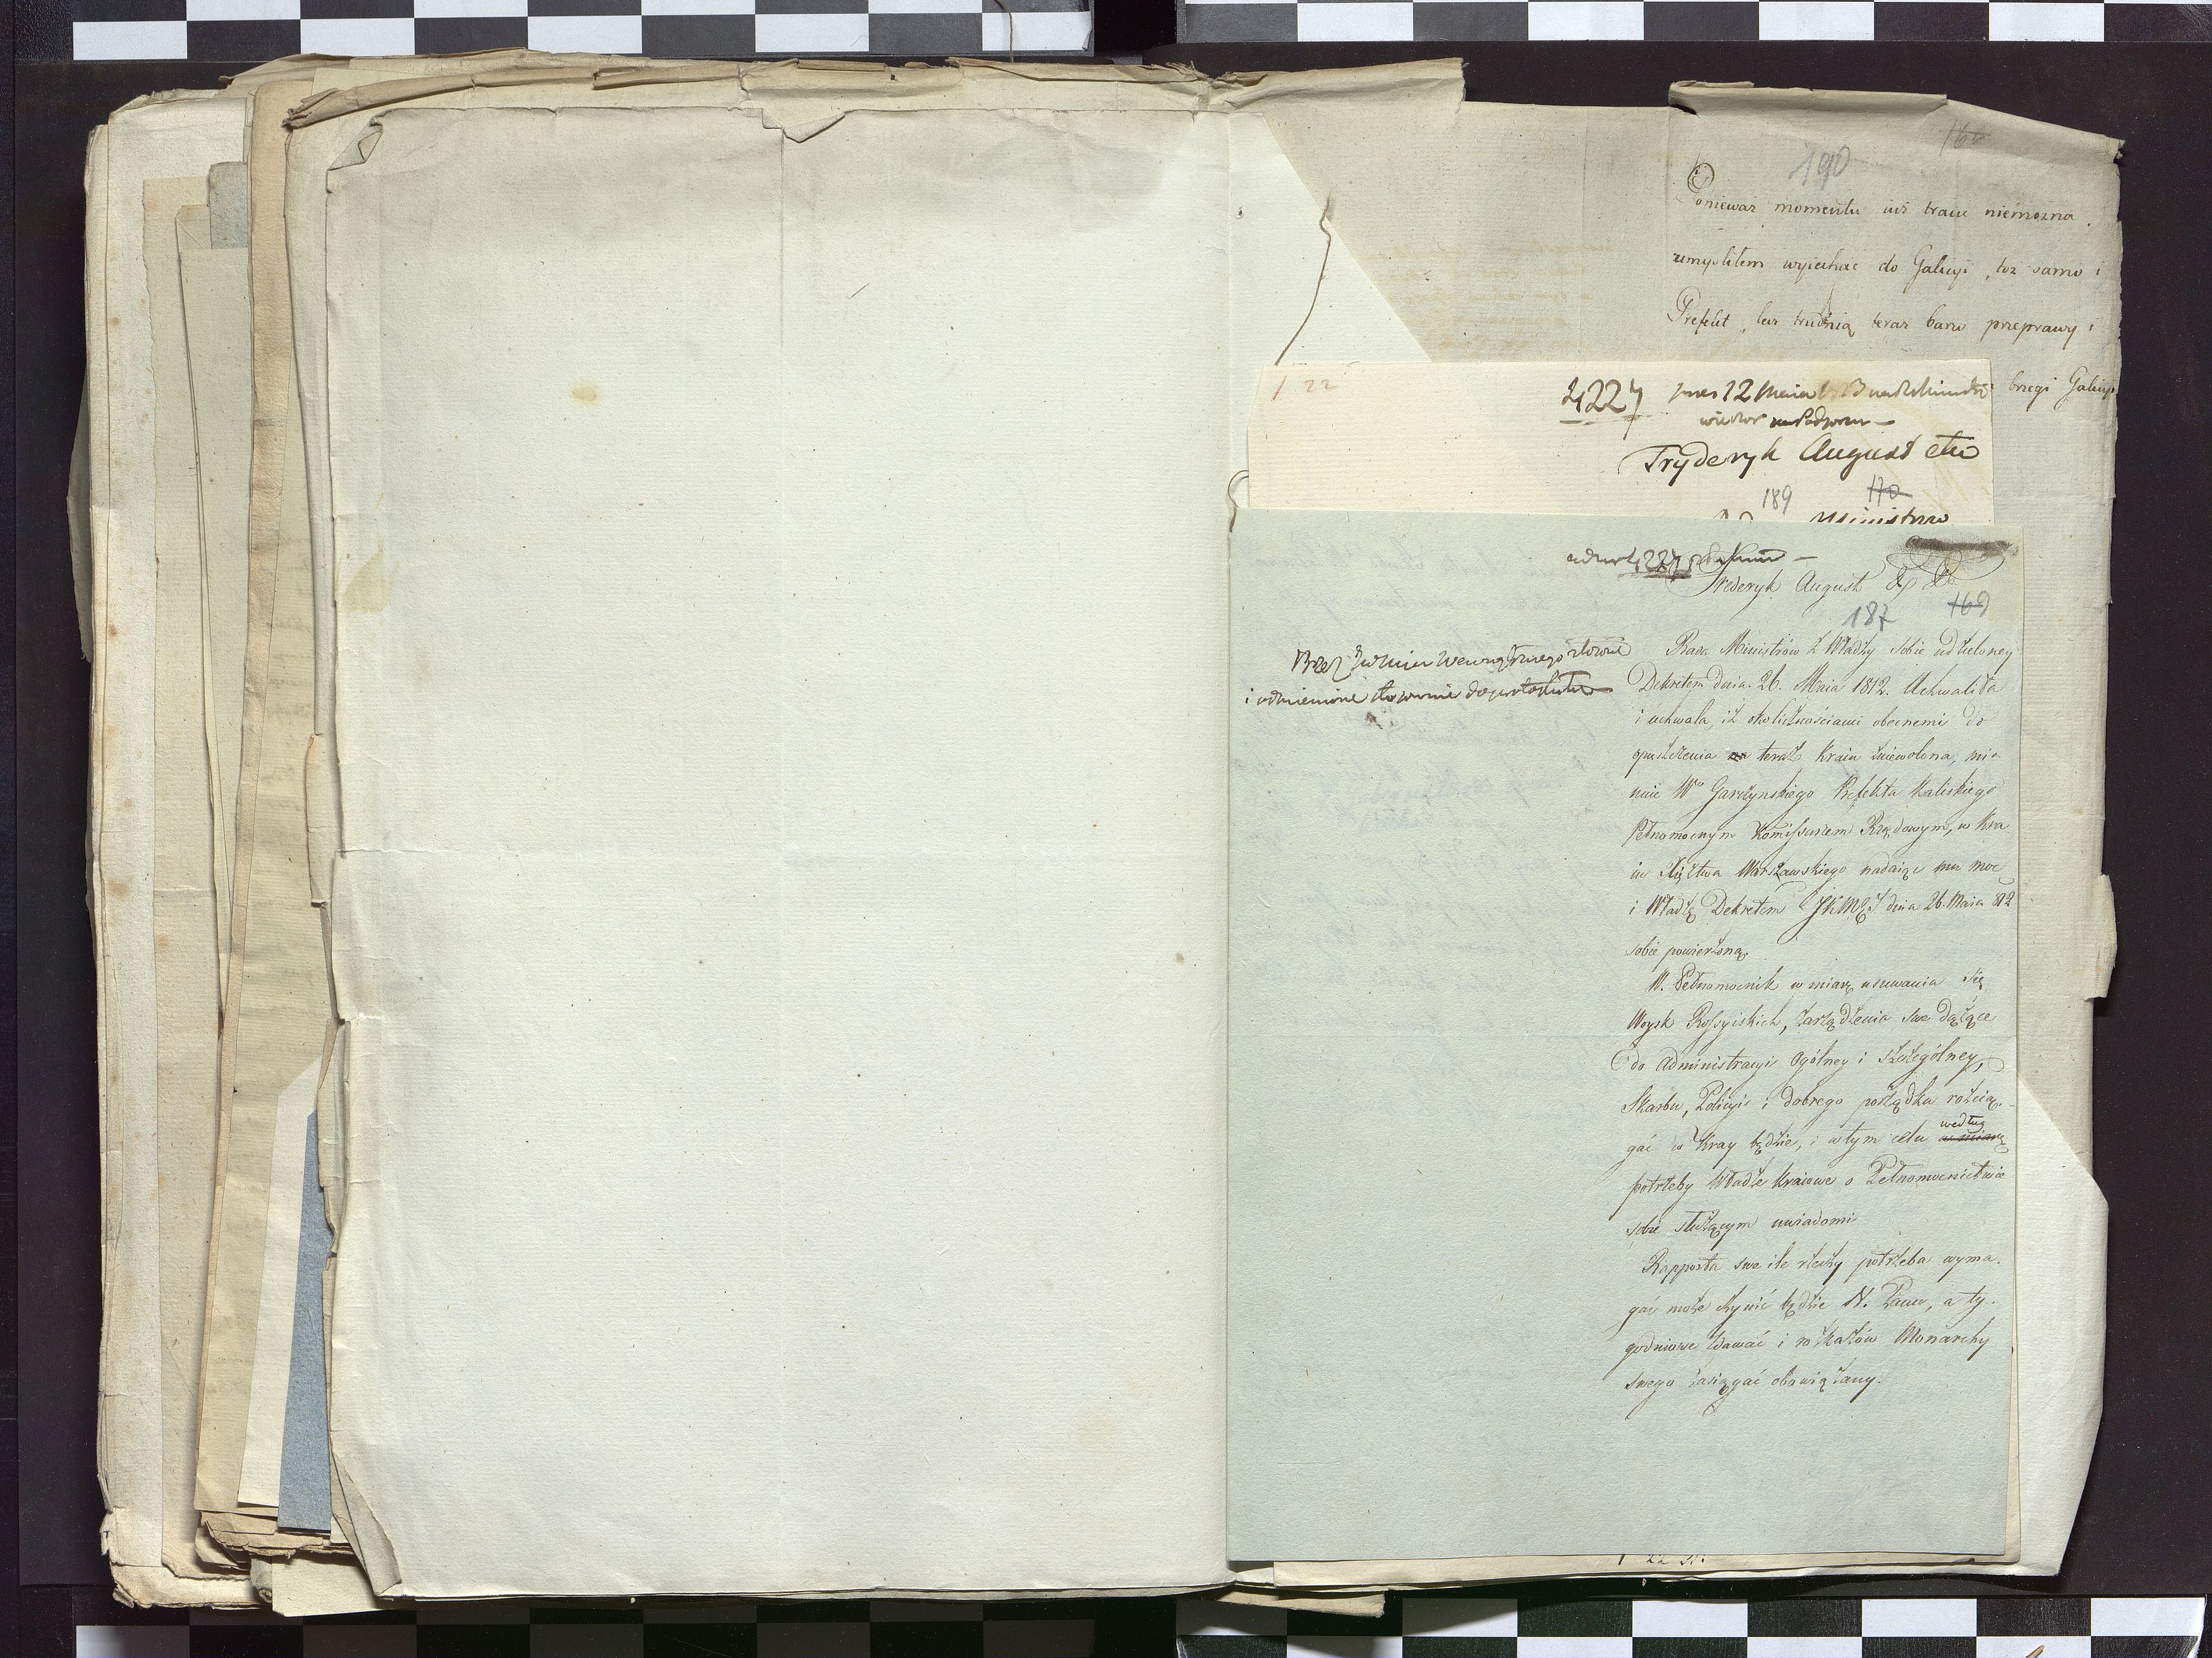 166
190
Poniewaz momentu iuż traw niemożna
umysliłem wyiechać do Galicyi, toż samo i
Prefekt, lecz trudnią teraz barw przeprawy i
brzegi Galicyi
/ 22
4227
12 Maia
Fryderyk August etc
189
170
Ministrow
4227
Frederyk August & &
187
169
Przez Ministra Wewnętrznego
i odmienione
Rada Ministrów z Władzy sobie udzieloney
Dekretem dnia 26. Maia 1812. Uchwaliła
i uchwala, iż okolicznościami obecnemi do
opuszczenia teraz Kraiu zniewolona, mia
nuie Wo Garczynskiego Prefekta Kaliskiego
Pełnomocnym Komissarzem Rządowym, w Kra
iu Xięztwa Warszawskiego nadaiąc mu moc
i Władzę Dekretem JKMCi dnia 26. Maia 812
sobie powierzoną.
W. Pełnomocnik w miarę usuwania się
Woysk Rossyiskich, zarządzenia swe dążące
do administracyi Ogólney i szczególney,
Skarbu, Policyi i dobrego porządku rozcią-
gać w Kray będzie, i w tym celu w miarę według
potrzeby Władze kraiowe o Pełnomocnictwie
sobie służącym uwiadomi
Rapporta swe ile rzeczy potrzeba wyma-
gać może czynić będzie N. Panu, a ty-
godniowe zdawać i rozkazów Monarchy
swego zasięgać obowiązany.
22